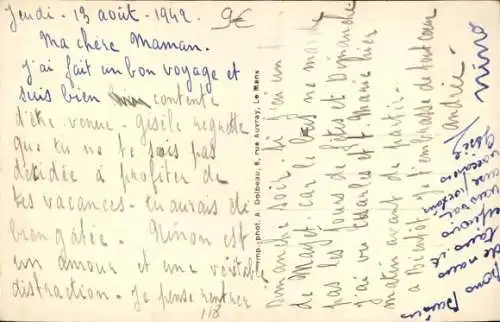 Jeudi - 13 août - 1942
9€
Ma chère Maman.
j'ai fait un bon voyage et
suis bien contente
d'être venue. Gisèle regrette
que tu ne te sois pas
décidée à profiter de
tes vacances - tu aurais été
bien gâtée. Ninon est
un amour et une véritable
distraction. Je pense rentrer
118
Imp.-phot. A. Dolbeau, 8, rue Auvray, Le Mans
Dimanche soir. Si j'ai un
de Mayet. car le bus ne marche
pas les jours de fêtes et Dimanche
j'ai vu Charles et Marie hier
matin avant de partir.
a Bientôt je t'embrasse de tout cœur
Andrée